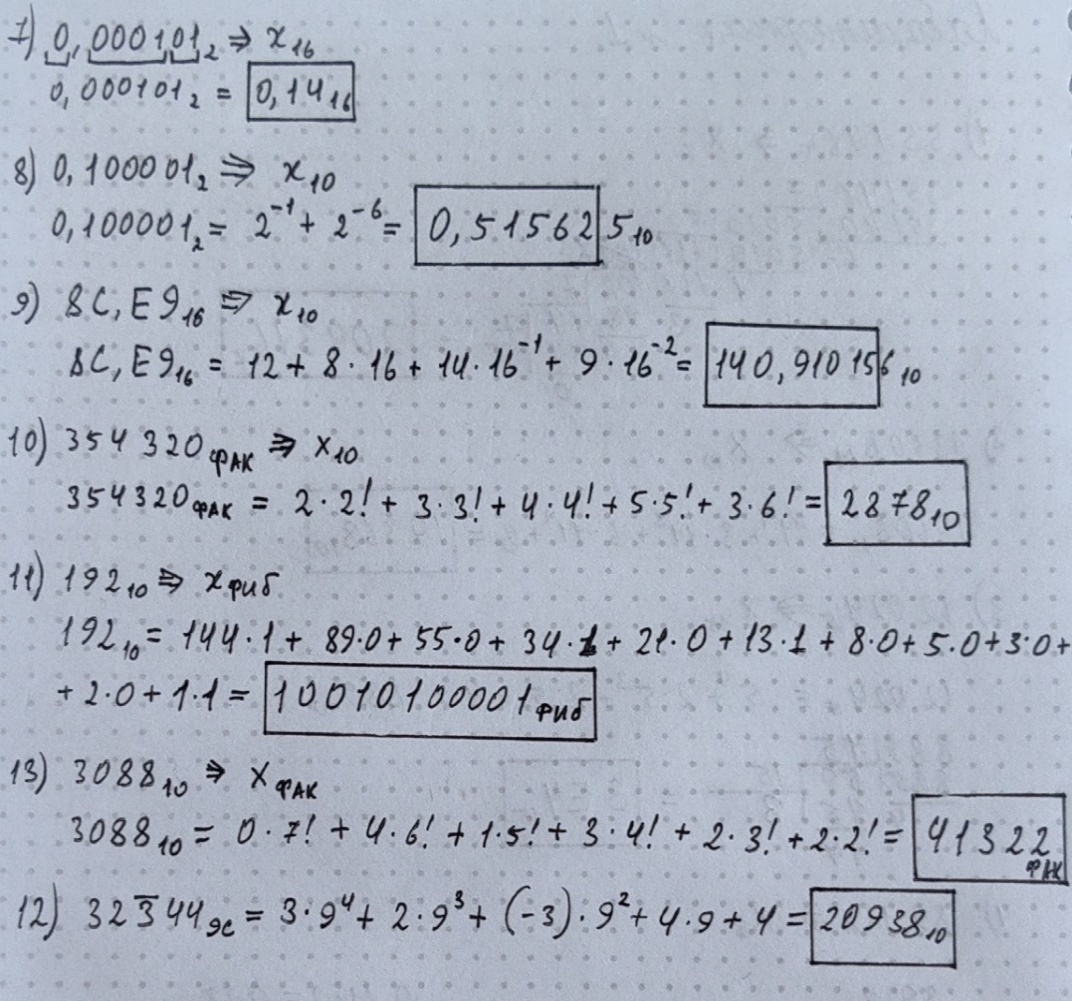 7) 0,000101₂ ⇒ x₁₆
0,000101₂ = 0,14₁₆
8) 0,100001₂ ⇒ x₁₀
0,100001₂ = 2⁻¹ + 2⁻⁶ = 0,515625₁₀
9) 8C,E9₁₆ ⇒ x₁₀
8C,E9₁₆ = 12 + 8·16 + 14·16⁻¹ + 9·16⁻² = 140,910156₁₀
10) 354320ФАК ⇒ x₁₀
354320ФАК = 2·2! + 3·3! + 4·4! + 5·5! + 3·6! = 2878₁₀
11) 192₁₀ ⇒ xФИБ
192₁₀ = 144·1 + 89·0 + 55·0 + 34·1 + 21·0 + 13·1 + 8·0 + 5·0 + 3·0 +
+ 2·0 + 1·1 = 10010100001ФИБ
13) 3088₁₀ ⇒ xФАК
3088₁₀ = 0·7! + 4·6! + 1·5! + 3·4! + 2·3! + 2·2! = 41322ФАК
12) 323̅44₉С = 3·9⁴ + 2·9³ + (-3)·9² + 4·9 + 4 = 20938₁₀